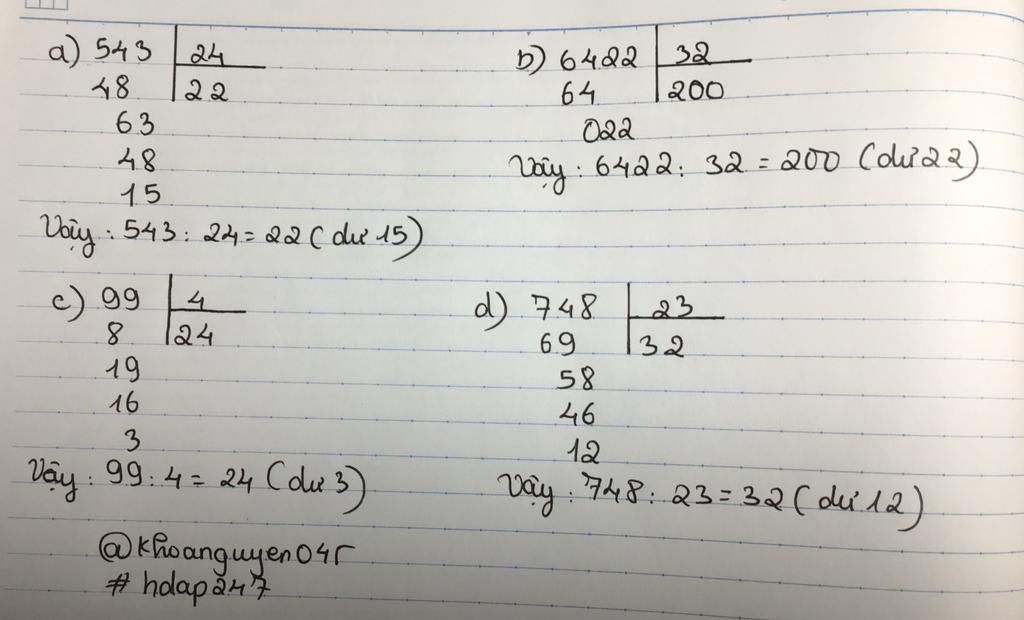 a) 543 24
48 22
63
48
15
Vậy : 543 : 24 = 22 ( dư 15 )
b) 6422 32
64 200
022
Vậy : 6422 : 32 = 200 ( dư 22 )
c) 99 4
8 24
19
16
3
Vậy : 99 : 4 = 24 ( dư 3 )
d) 748 23
69 32
58
46
12
Vậy : 748 : 23 = 32 ( dư 12 )
@khoanguyen04r
# hdap247